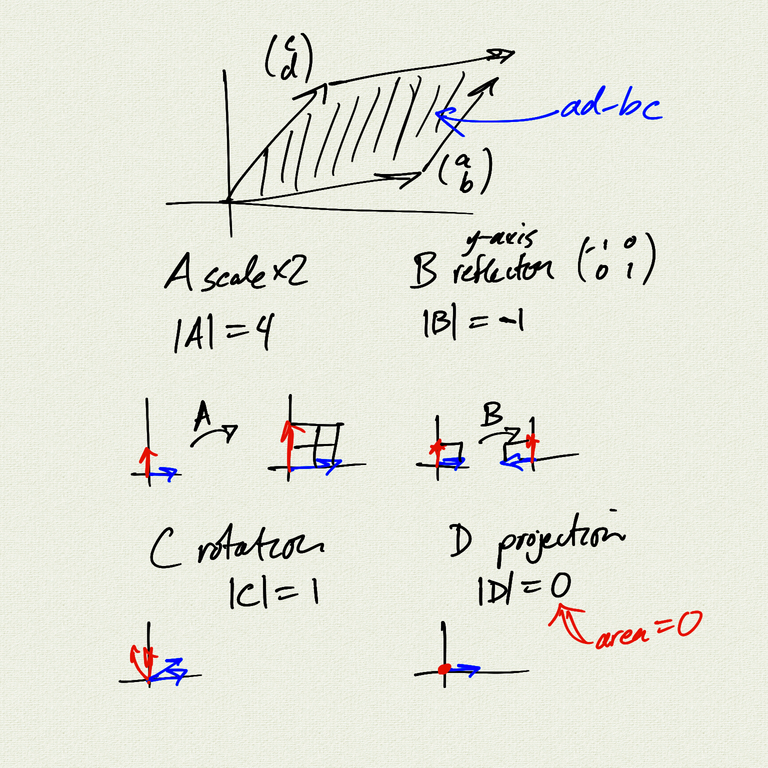 (c
d)
ad-bc
(a
b)
A scale x2
|A| = 4
y-axis
B reflection (-1 0
0 1)
|B| = -1
A
B
C rotation
|C| = 1
D projection
|D| = 0
area = 0